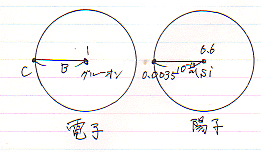 1
C B グルーオン
6.6
0.0035
si
電子
陽子